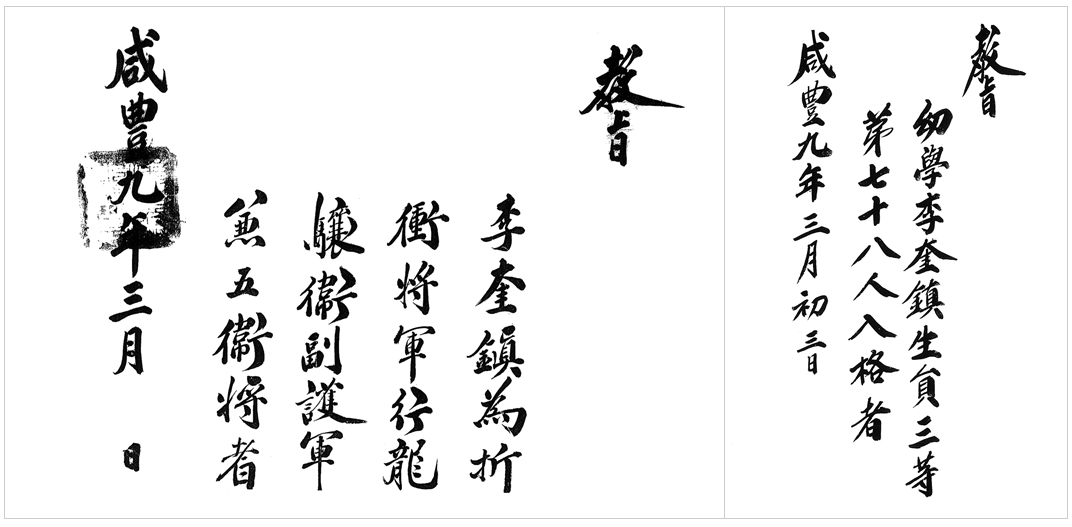 敎旨
幼學李奎鎭生員三等
第七十八人入格者
咸豐九年三月初三日
敎旨
李奎鎭為折
衝將軍行龍
驤衛副護軍
兼五衛將者
咸豐九年三月 日